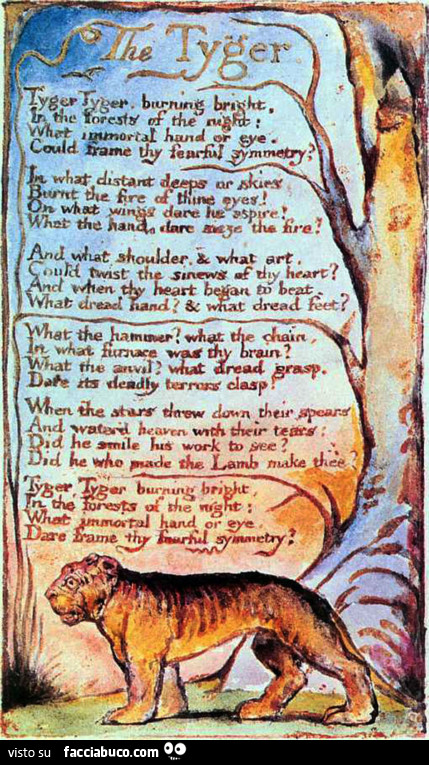 The Tyger
Tyger Tyger, burning bright,
In the forests of the night:
What immortal hand or eye,
Could frame thy fearful symmetry?
In what distant deeps or skies
Burnt the fire of thine eyes!
On what wings dare he aspire!
What the hand, dare sieze the fire?
And what shoulder, & what art,
Could twist the sinews of thy heart?
And when thy heart began to beat,
What dread hand? & what dread feet?
What the hammer? what the chain,
In what furnace was thy brain?
What the anvil? what dread grasp,
Dare its deadly terrors clasp!
When the stars threw down their spears
And water'd heaven with their tears:
Did he smile his work to see?
Did he who made the Lamb make thee?
Tyger Tyger burning bright,
In the forests of the night:
What immortal hand or eye,
Dare frame thy fearful symmetry?
visto su facciabuco.com